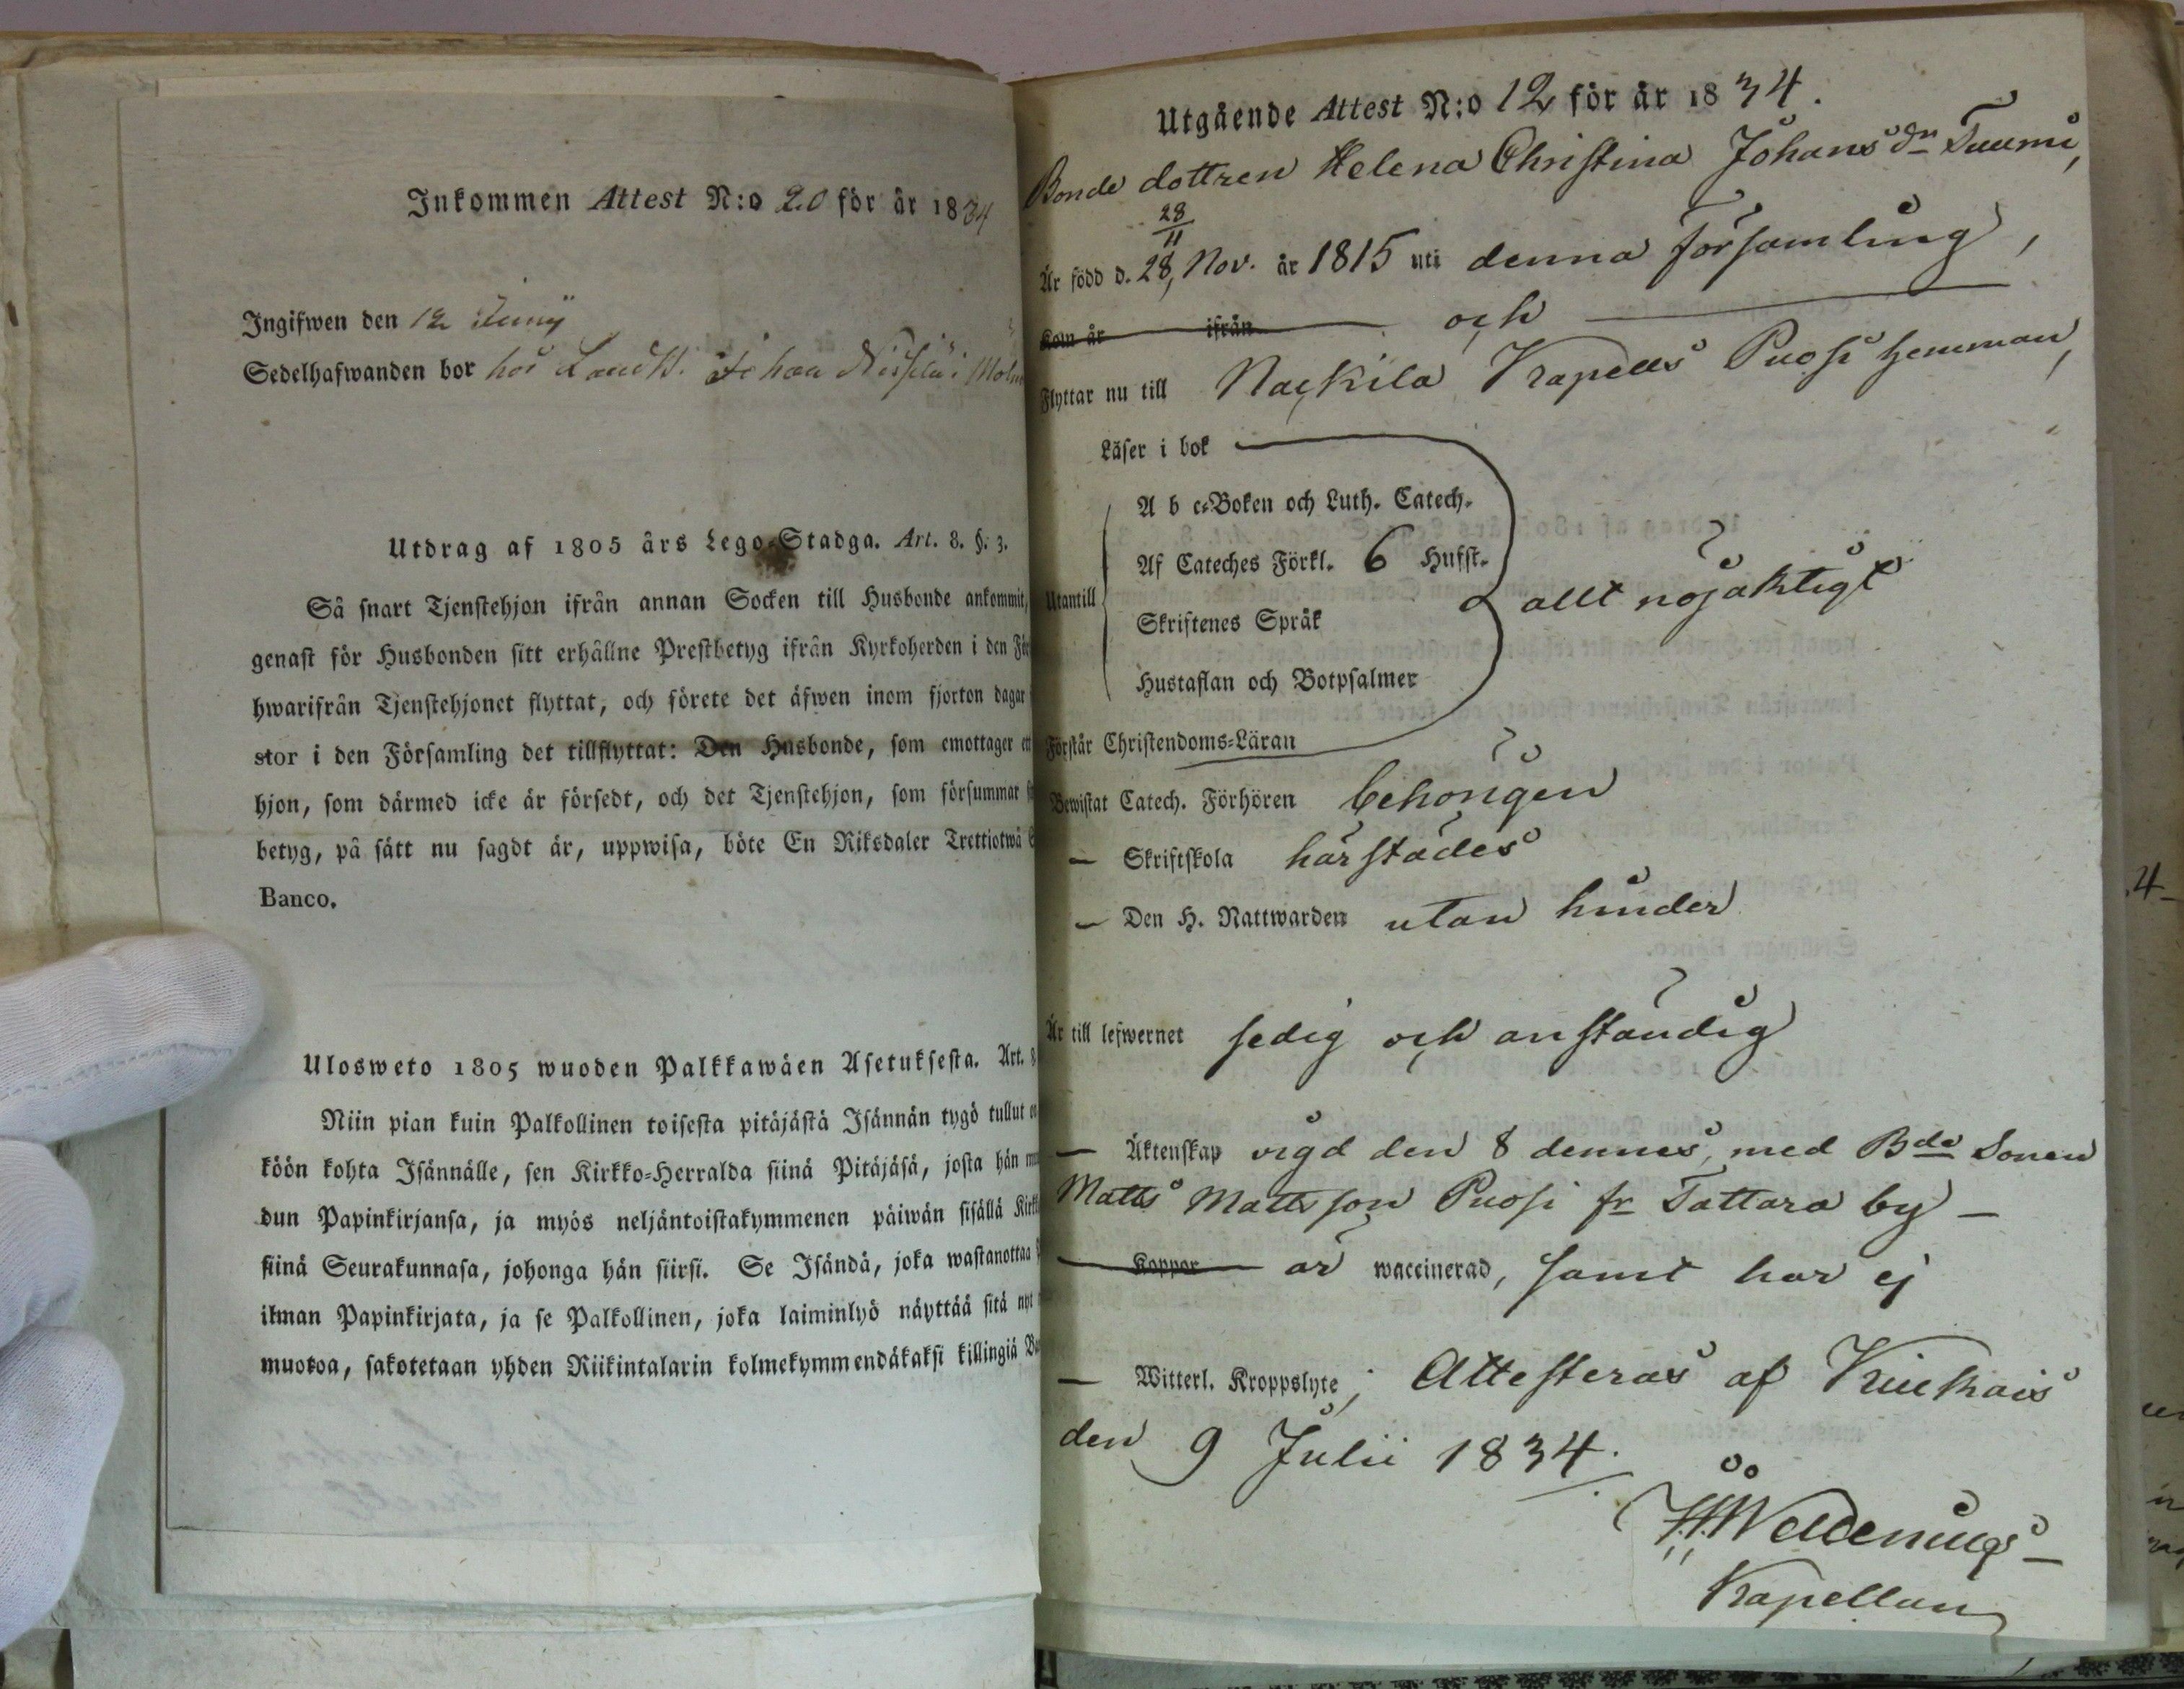 Inkommen Attest N:o 20 för år 1834
Ingifwen den 12 Junij
Sedelhafwanden bor hos Johan i
Utdrag af 1805 års Lego-Stadga. Art. 8. §. 3.
Så snart Tjenstehjon ifrån annan Socken till Husbonde ankommit,
genast för Husbonden sitt erhållne Prestbetyg ifrån Kyrkoherden i den
hwarifrån Tjenstehjonet flyttat, och förete det äfwen inom fjorton dagar
stor i den Församling det tillflyttat: Den Husbonde, som emottager
hjon, som därmed icke är försedt, och det Tjenstehjon, som försummar
betyg, på sätt nu sagdt är, uppwisa, böte En Riksdaler Trettiotwå
Banco.
Ulosweto 1805 wuoden Palkkawäen Asetuksesta. Art. 8
Niin pian kuin Palkollinen toisesta pitäjästä Isännän tygö tullut
köön kohta Isännälle, sen Kirkko-Herralda siinä Pitäjäsä, josta hän
dun Papinkirjansa, ja myös neljäntoistakymmenen päiwän sisällä
siinä Seurakunnasa, johonga hän siirsi. Se Isändä, joka wastanottaa
ilman Papinkirjata, ja se Palkollinen, joka laiminlyö näyttää sitä nyt
muotoa, sakotetaan yhden Riikintalarin kolmekymmendäkaksi killingiä
Utgående Attest N:o 12 för år 1834.
Bonde dottren Helena Christina Johansdr Tuumi,
28/11
Är född d. 28, Nov. år 1815 uti denna församling,
Kom år ifrån och
Flyttar nu till Nackila Kapells Puosi hemman,
Läser i bok
A b c-Boken och Luth. Catech.
Af Cateches Förkl. 6 Hufst.
Utantill
allt nöjaktigt
Skriftenes Språk
Hustaflan och Botpsalmer
Förstår Christendoms-Läran
Bewistat Catech. Förhören behörigen
— Skriftskola härstädes
— Den H. Nattwarden utan hinder
Är till lefwernet sedig och anständig
— Äktenskap vigd den 8 dennes, med Bde Sonen
Matts Mattsson Puosi fr Tattara by —
Koppor är waccinerad, samt har ej
— Witterl. Kroppslyte; Attesteras af Kiukais
den 9 Julii 1834.
Kapellan